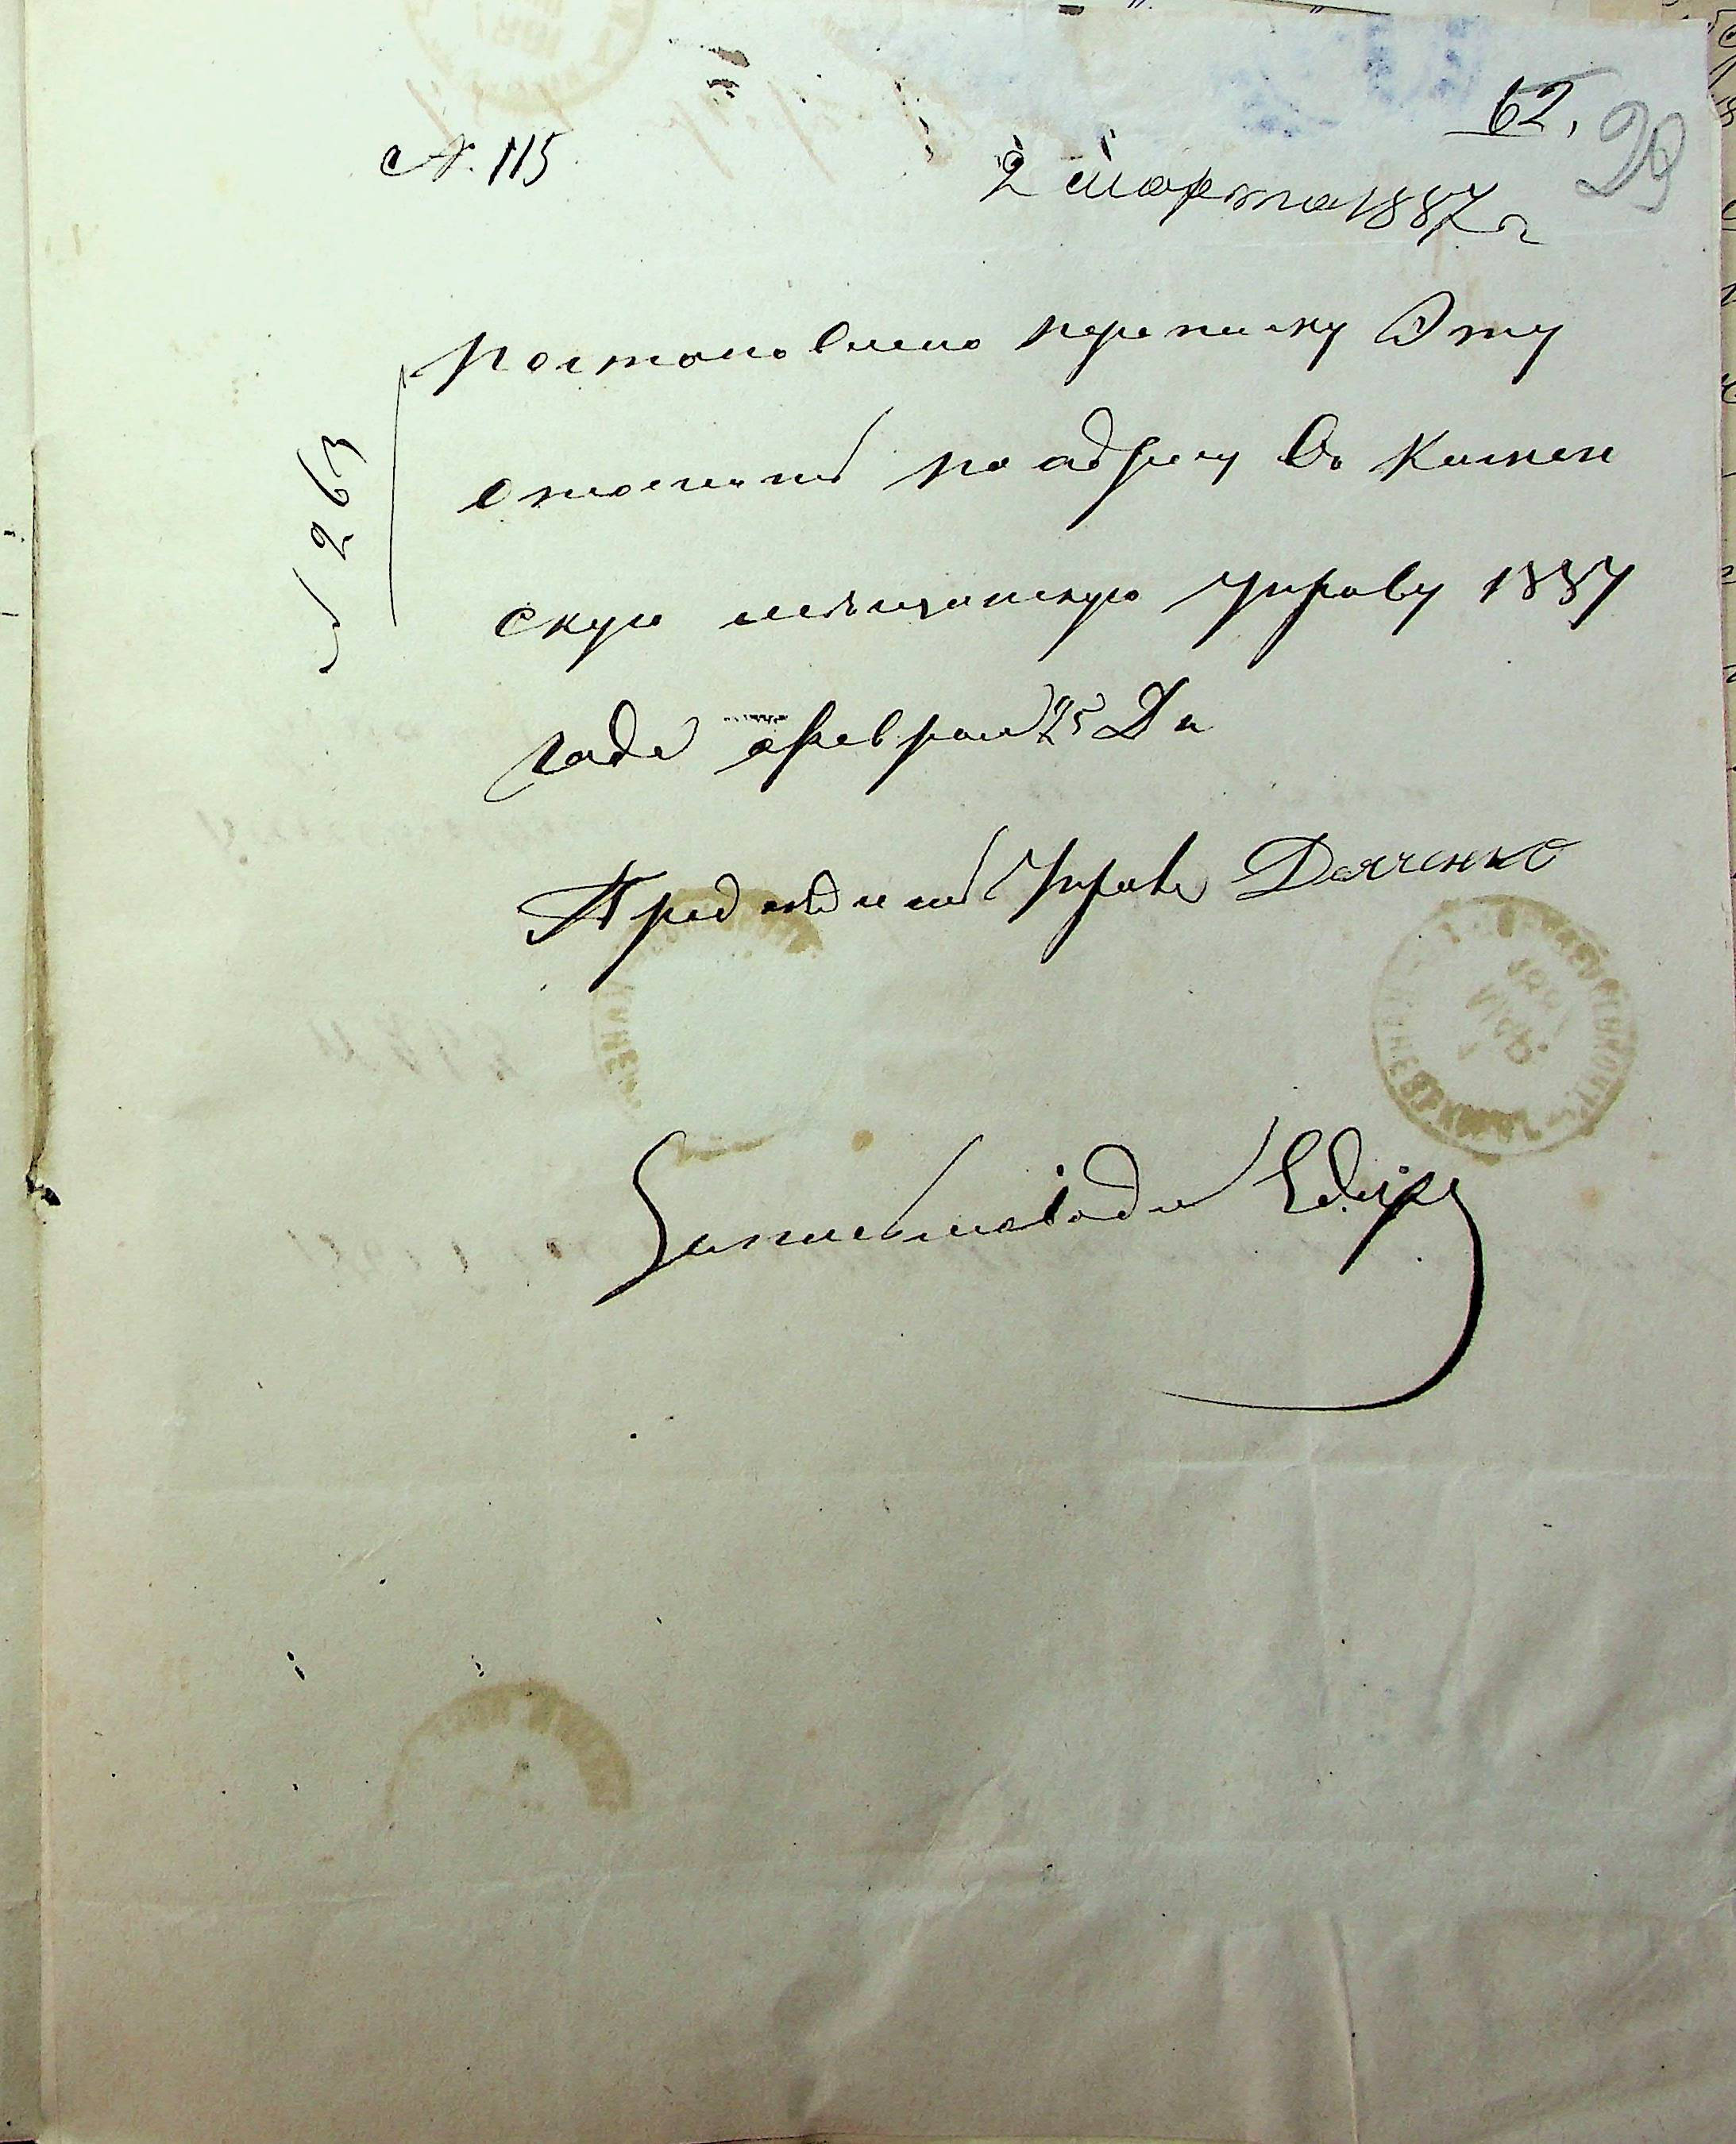 62.
29
№ 115
2 Марта 1887 г
№ 263
Постановлено переписку Эту
отослать по адресу Въ Кишен
скую мещанскую Управу 1887
года февраля 25 Дн
Предсѣдатель Управы Дяченко